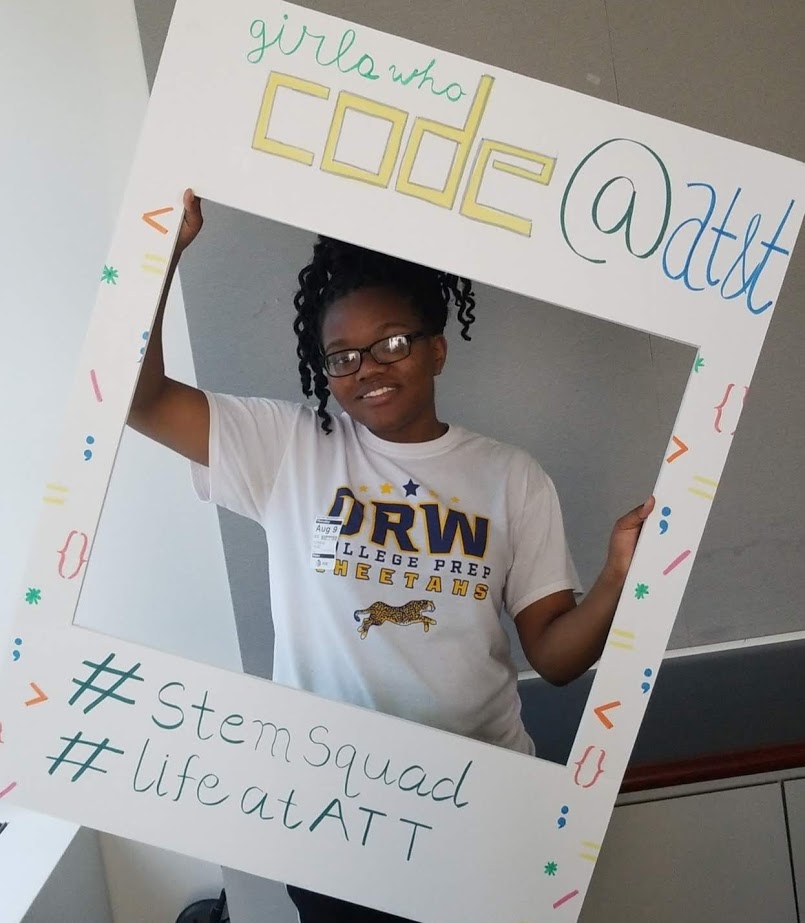 girls who
code @ at&t
DRW
COLLEGE PREP
CHEETAHS
Aug 9
#StemSquad
#lifeatATT